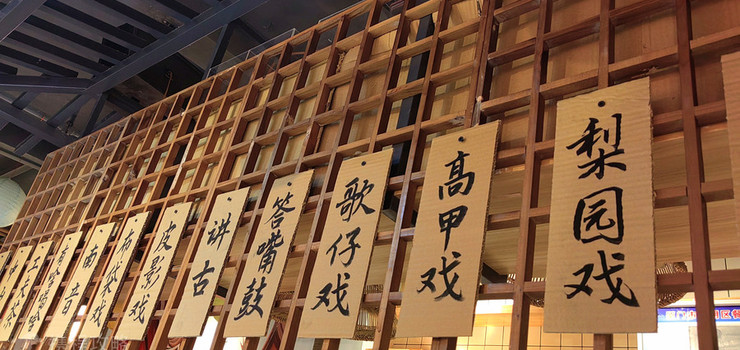 梨园戏
高甲戏
歌仔戏
答嘴鼓
讲古
皮影戏
布袋戏
南音